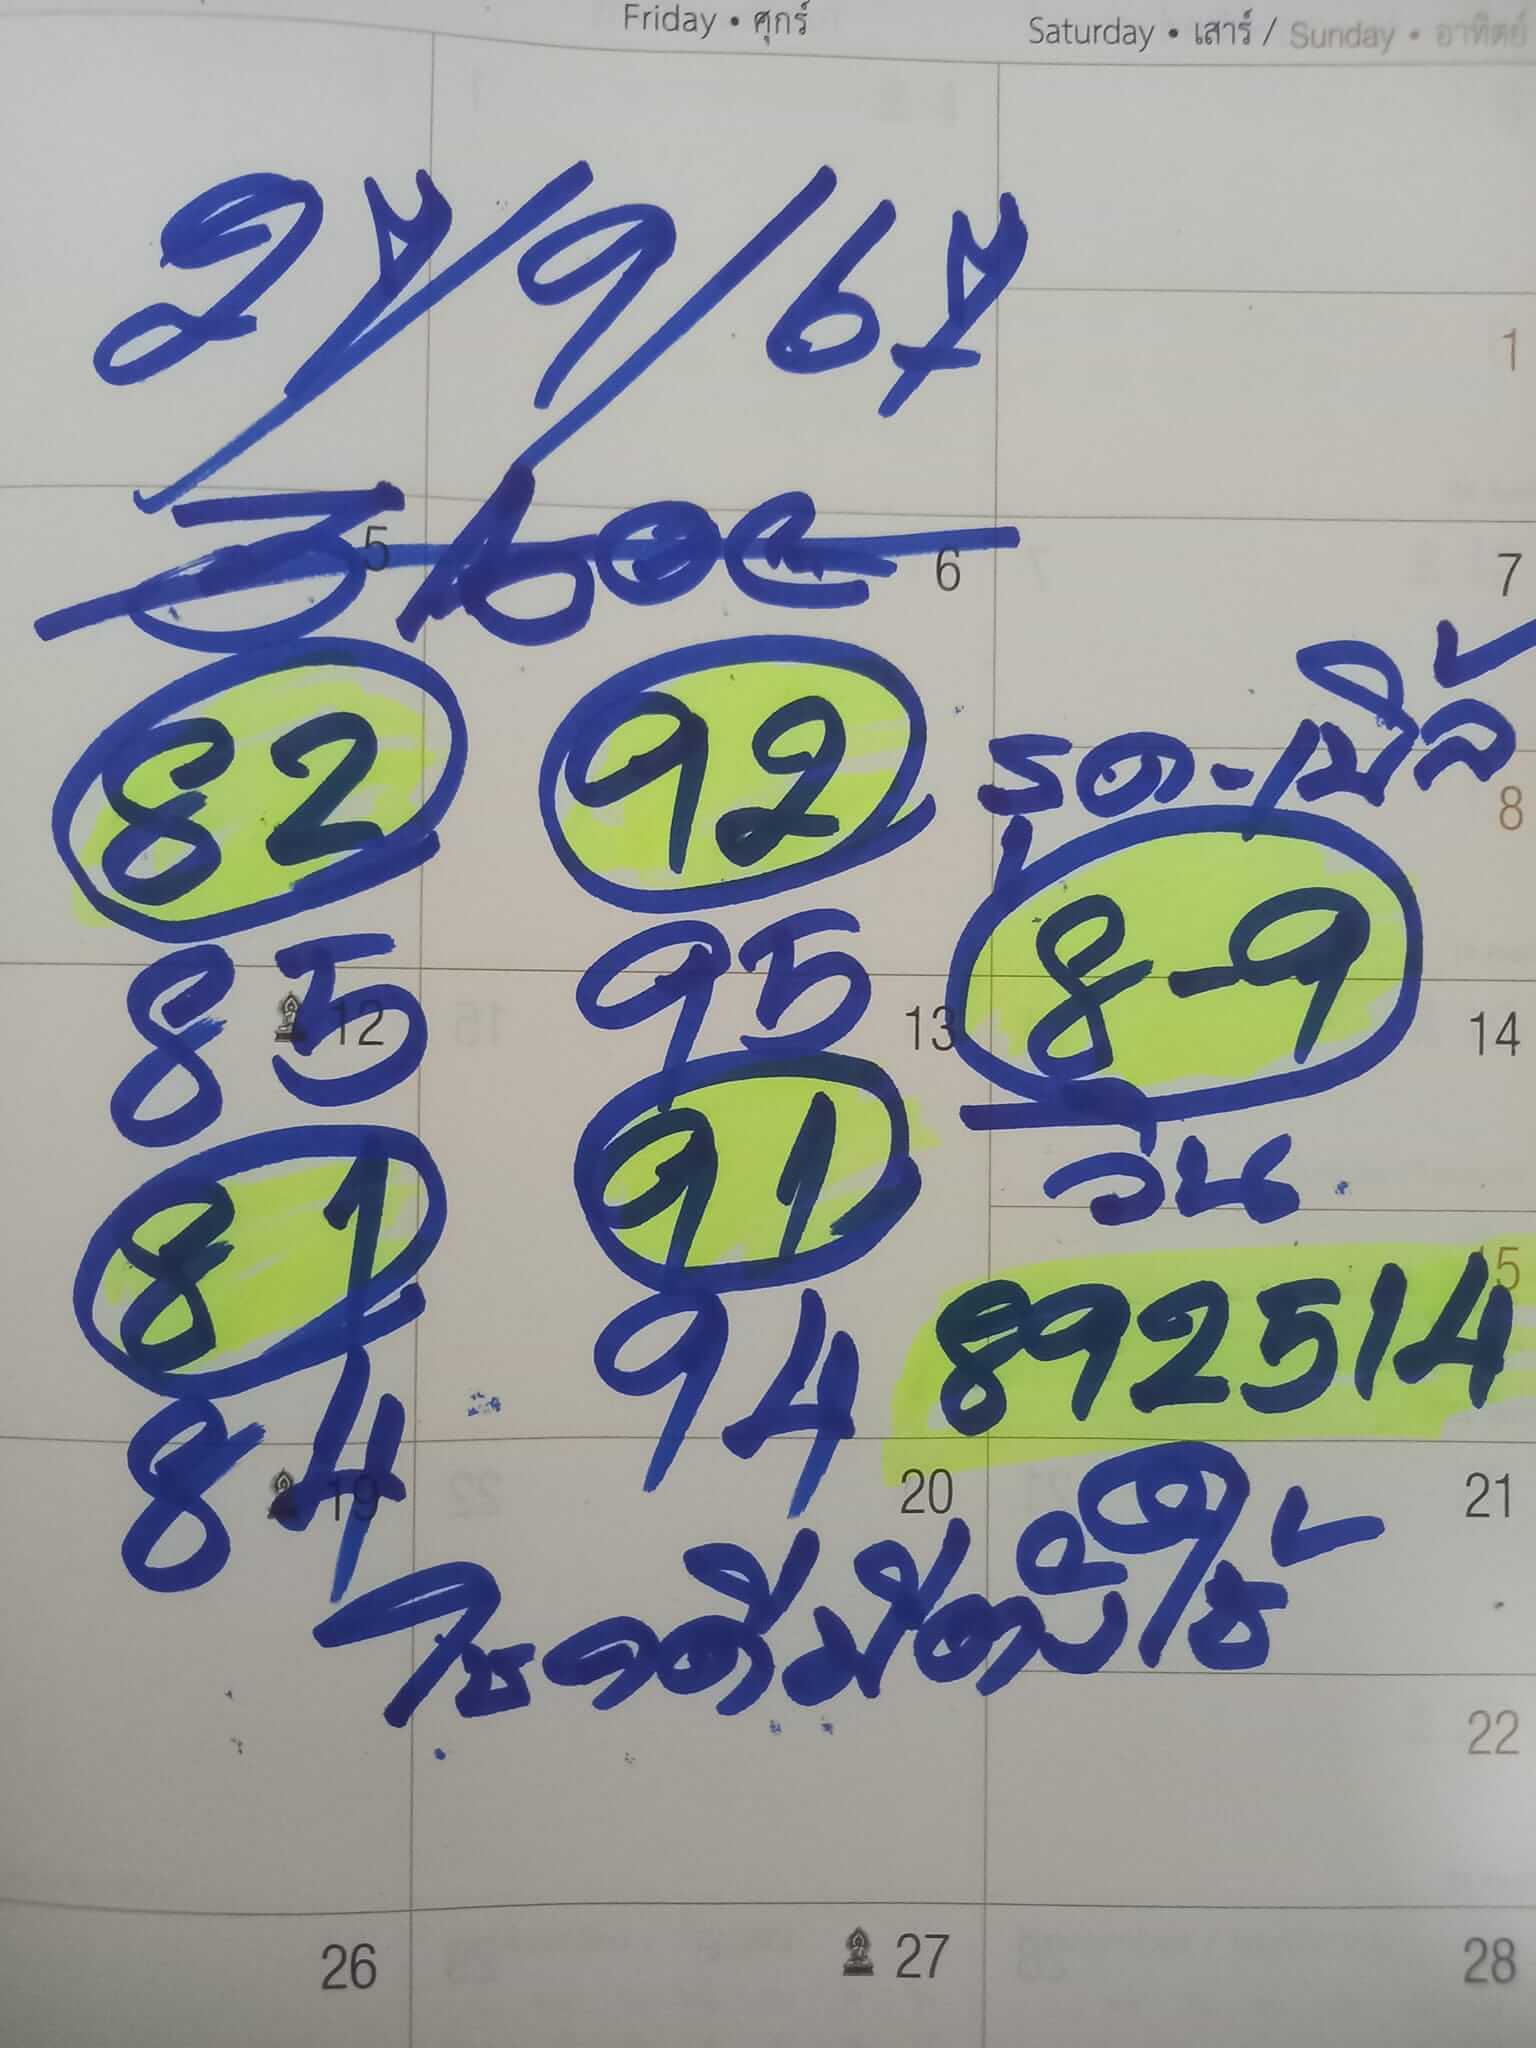 Friday • ศุกร์
Saturday • เสาร์ / Sunday • อาทิตย์
27/9/67
1
5
6
7
82 92 รูด-เบิ้ล
8
85 95 8-9
12
13
14
81 91 วิน
15
84 94 892514
19
20
21
โชคดีมีตังใช้
22
26
27
28